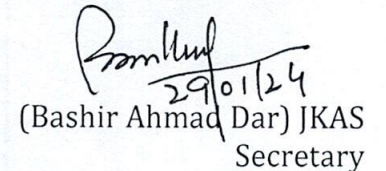 29/01/24
(Bashir Ahmad Dar) JKAS
Secretary